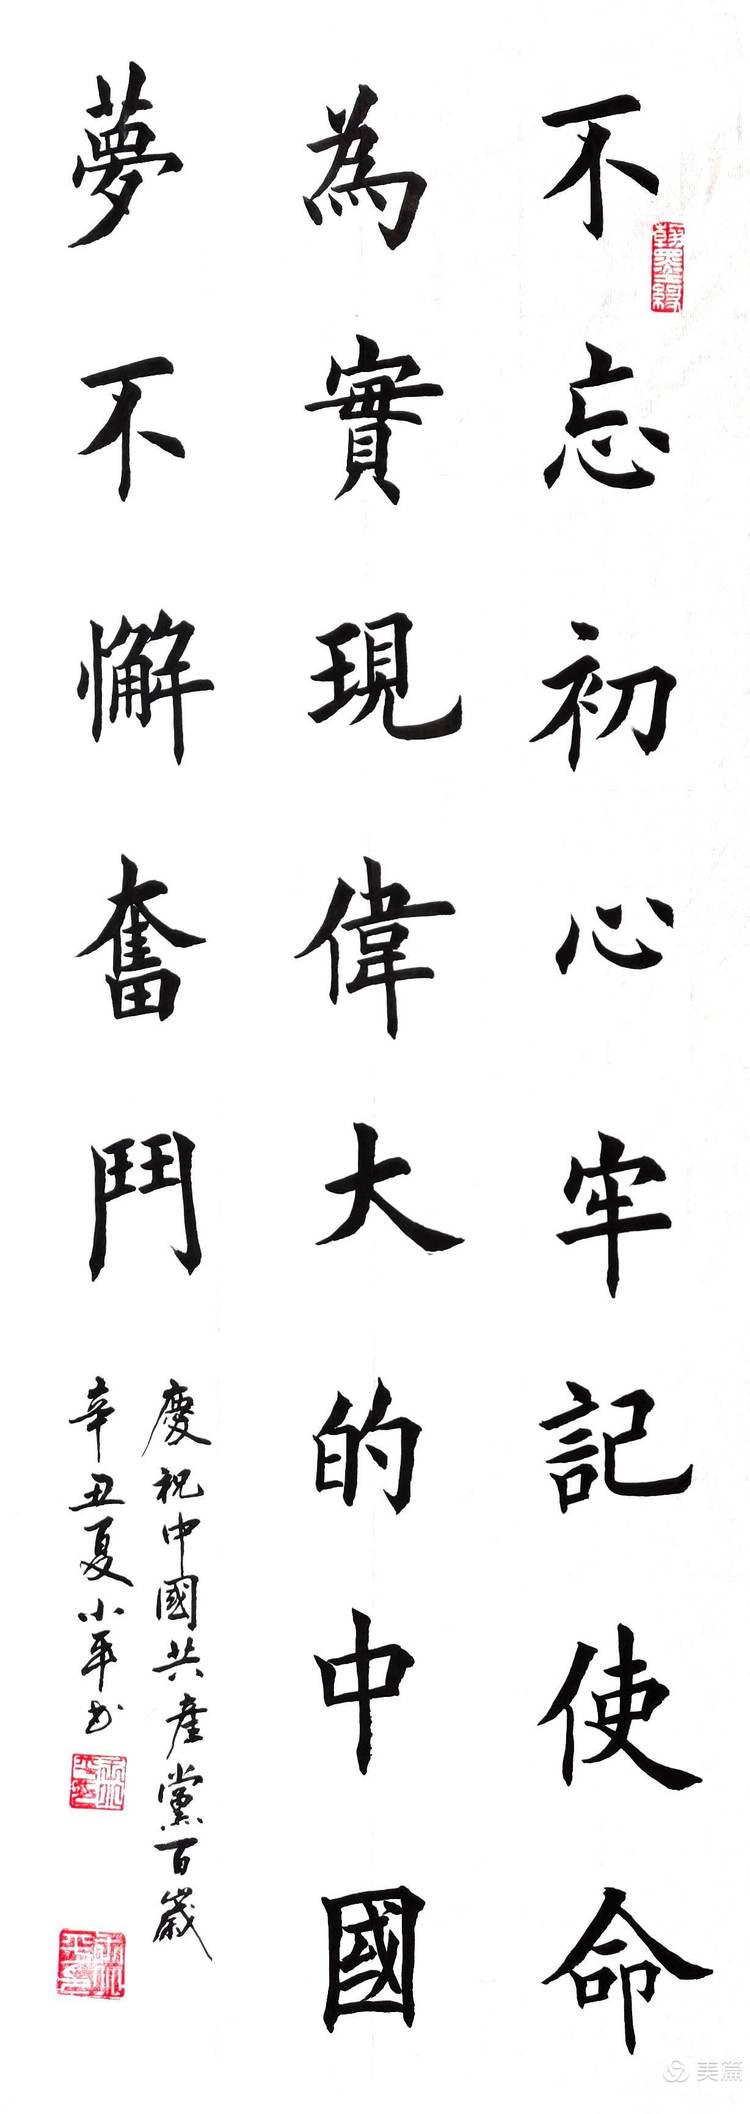 不忘初心牢記使命
為實現偉大的中國
夢不懈奮鬥
慶祝中國共產黨百歲
辛丑夏小平书
翰墨緣
美篇